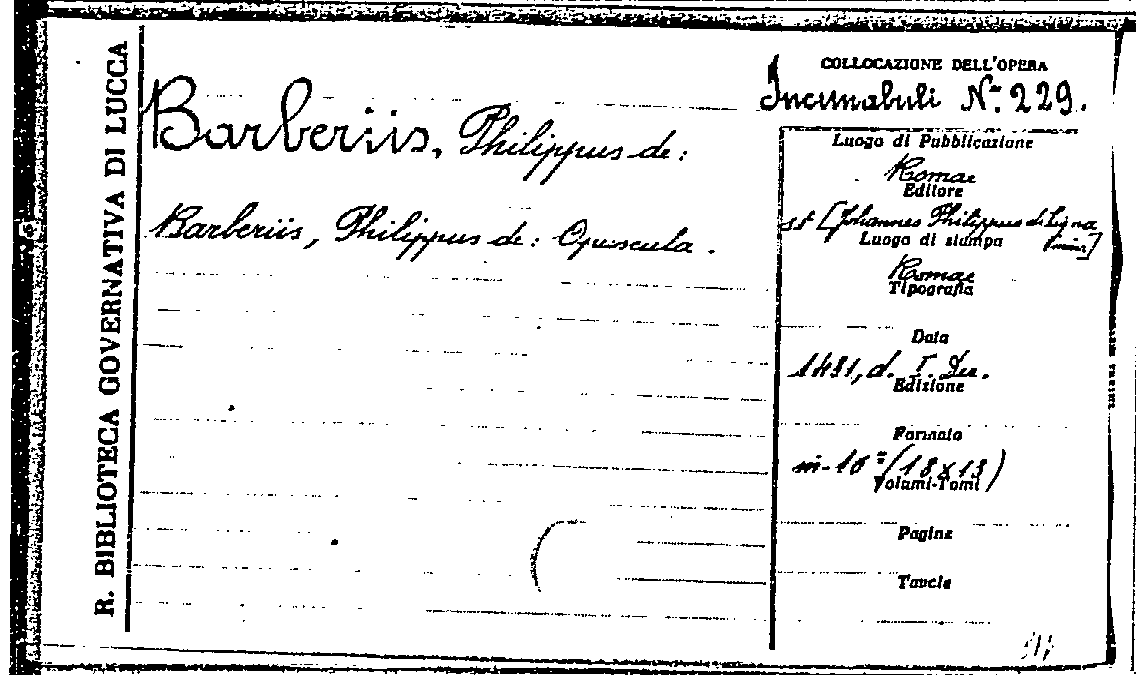 R. BIBLIOTECA GOVERNATIVA DI LUCCA
Barberiis, Philippus de:
Barberiis, Philippus de: Opuscula.
COLLOCAZIONE DELL'OPERA
Incunabuli N.º 229.
Luogo di Pubblicazione
Romae
Editore
[Johannes Philippus de Ligna
mine]
Luogo di stampa
Romae
Tipografia
Data
1481, d. I. De.
Edizione
Formato
in-16º (18x13)
Volumi-Tomi
Pagine
Tavole